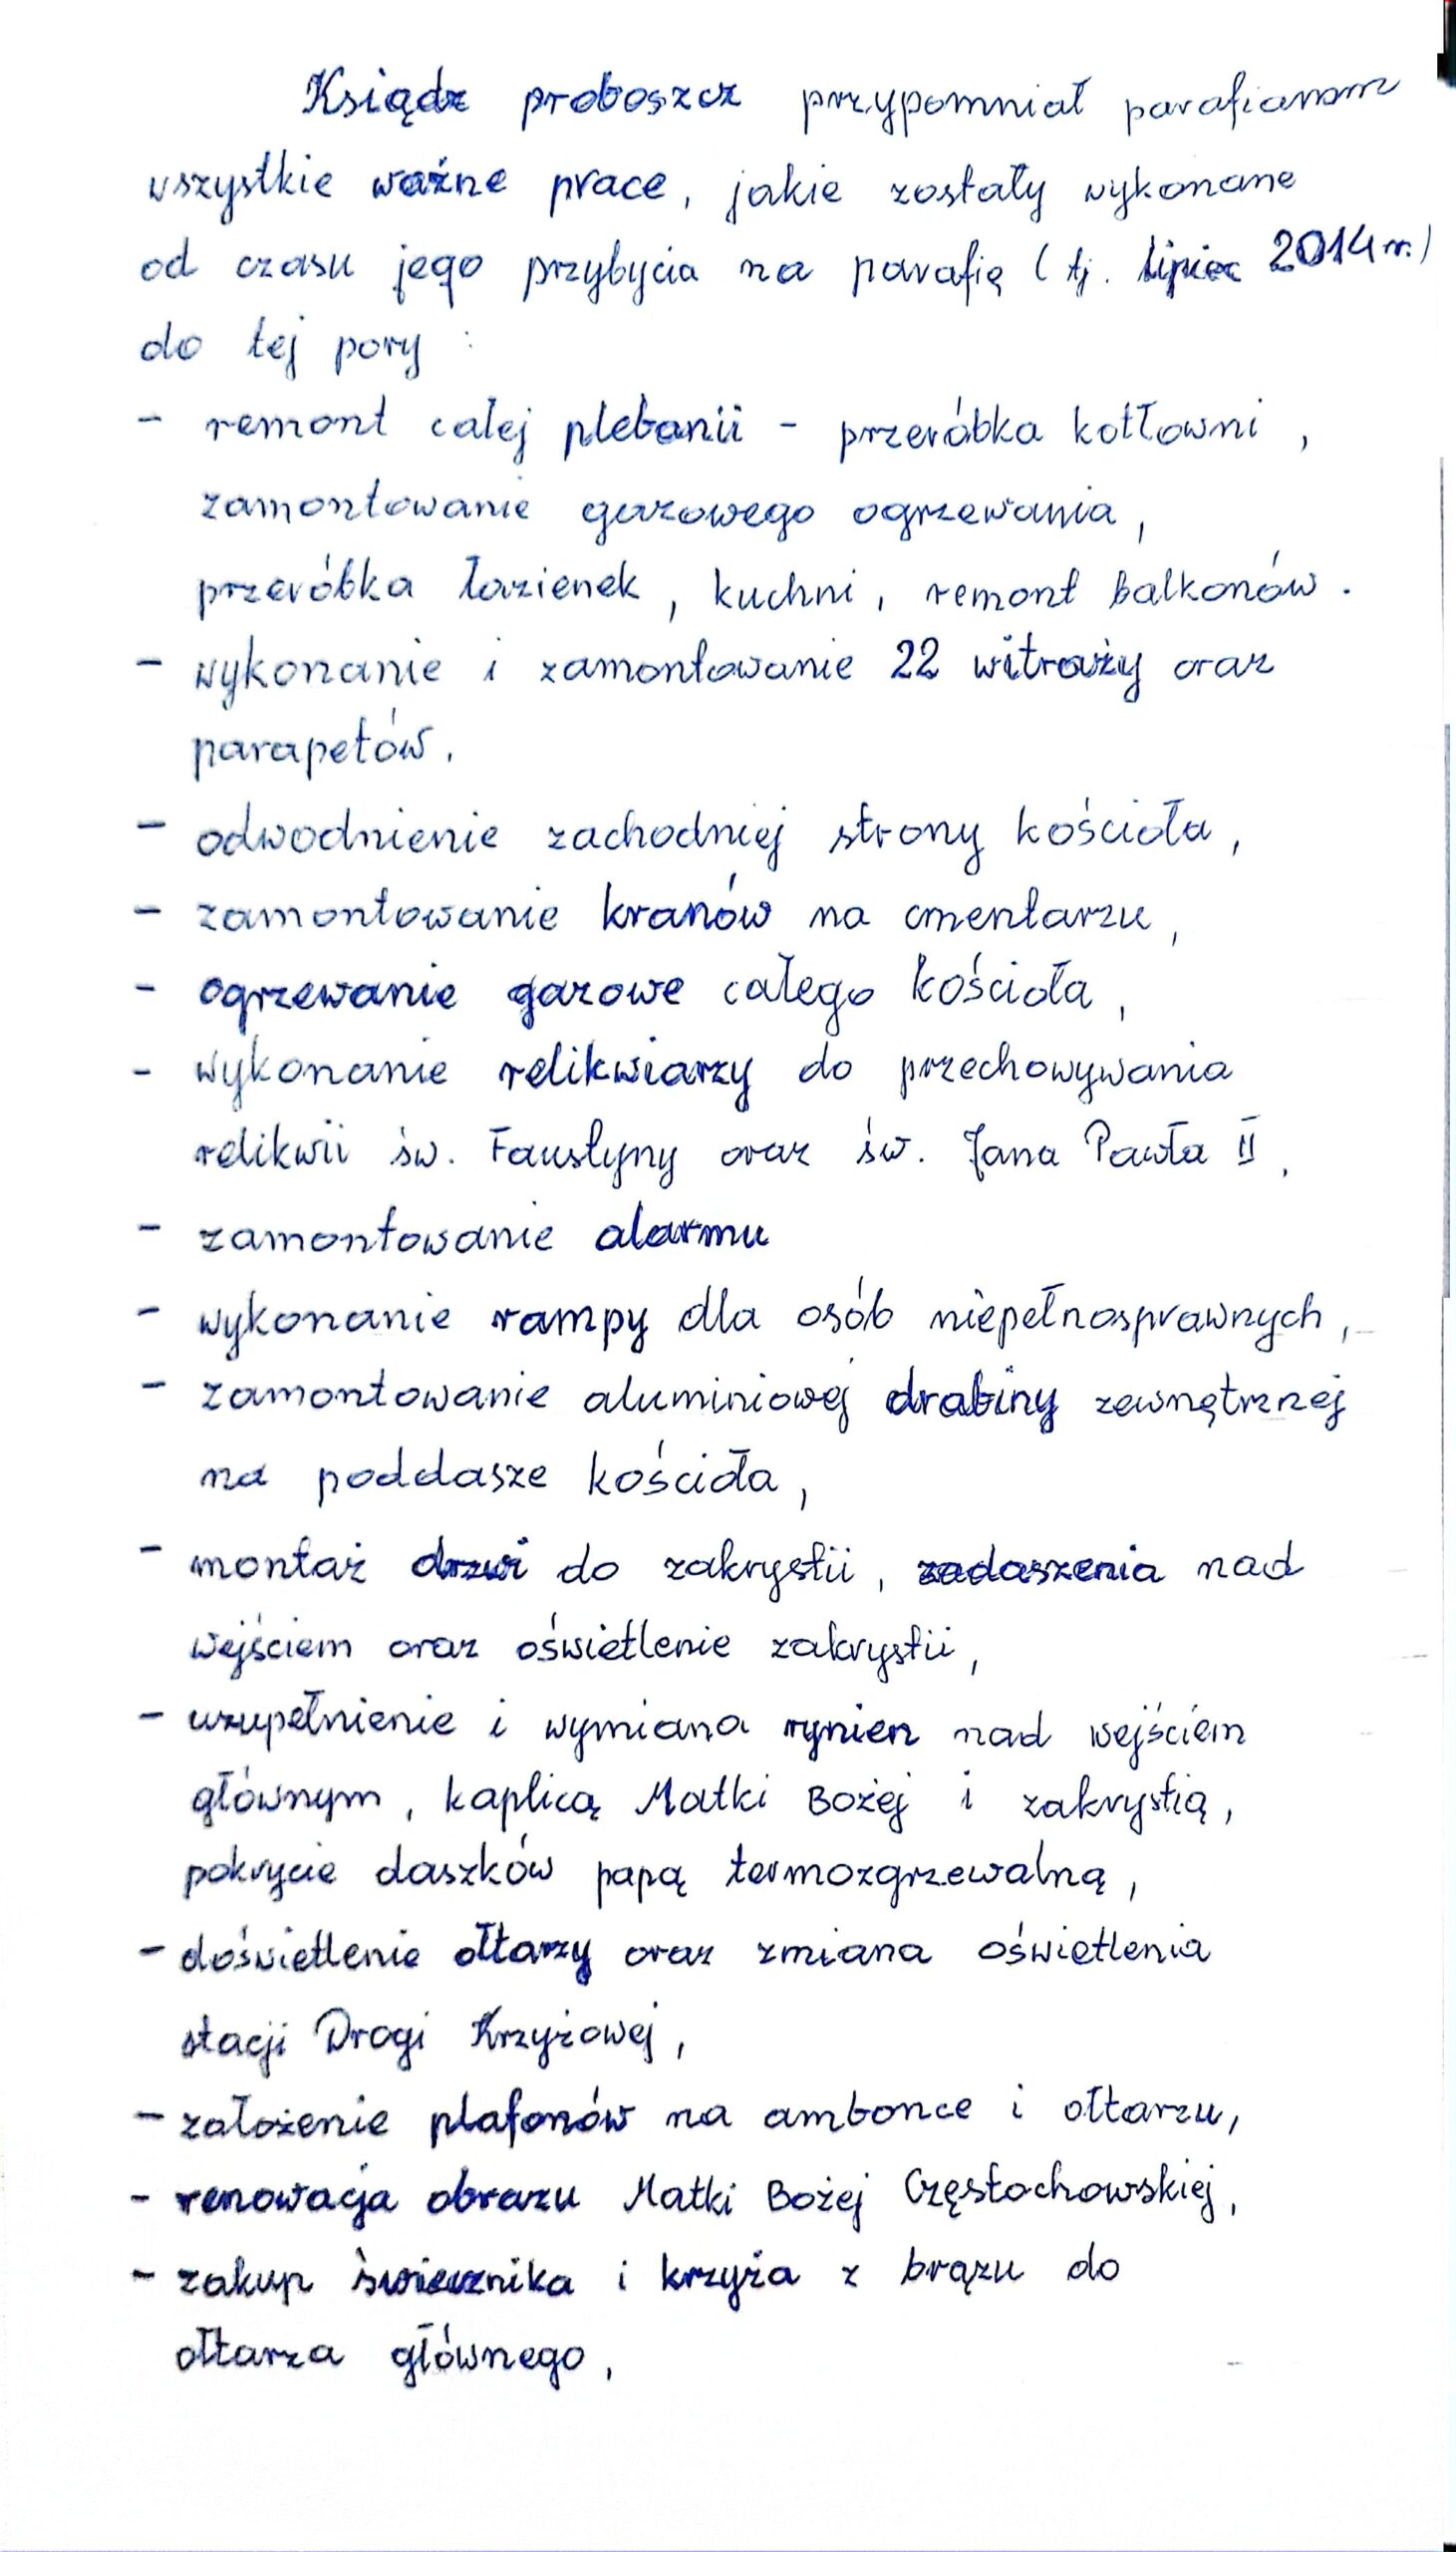 Ksiądz proboszcz przypomniał parafianom
wszystkie ważne prace, jakie zostały wykonane
od czasu jego przybycia na parafię (tj. lipiec 2014 r.)
do tej pory :
- remont całej plebanii - przeróbka kotłowni,
zamontowanie gazowego ogrzewania,
przeróbka łazienek, kuchni, remont balkonów.
- wykonanie i zamontowanie 22 witraży oraz
parapetów.
- odwodnienie zachodniej strony kościoła,
- zamontowanie kranów na cmentarzu,
- ogrzewanie gazowe całego kościoła,
- wykonanie relikwiarzy do przechowywania
relikwii św. Faustyny oraz św. Jana Pawła II,
- zamontowanie alarmu
- wykonanie rampy dla osób niepełnosprawnych,
- zamontowanie aluminiowej drabiny zewnętrznej
na poddasze kościoła,
- montaż drzwi do zakrystii, zadaszenia nad
wejściem oraz oświetlenie zakrystii,
- uzupełnienie i wymiana rynien nad wejściem
głównym, kaplicą Matki Bożej i zakrystią,
pokrycie daszków papą termozgrzewalną,
- doświetlenie ołtarzy oraz zmiana oświetlenia
stacji Drogi Krzyżowej,
- założenie plafonów na ambonce i ołtarzu,
- renowacja obrazu Matki Bożej Częstochowskiej,
- zakup świecznika i krzyża z brązu do
ołtarza głównego,